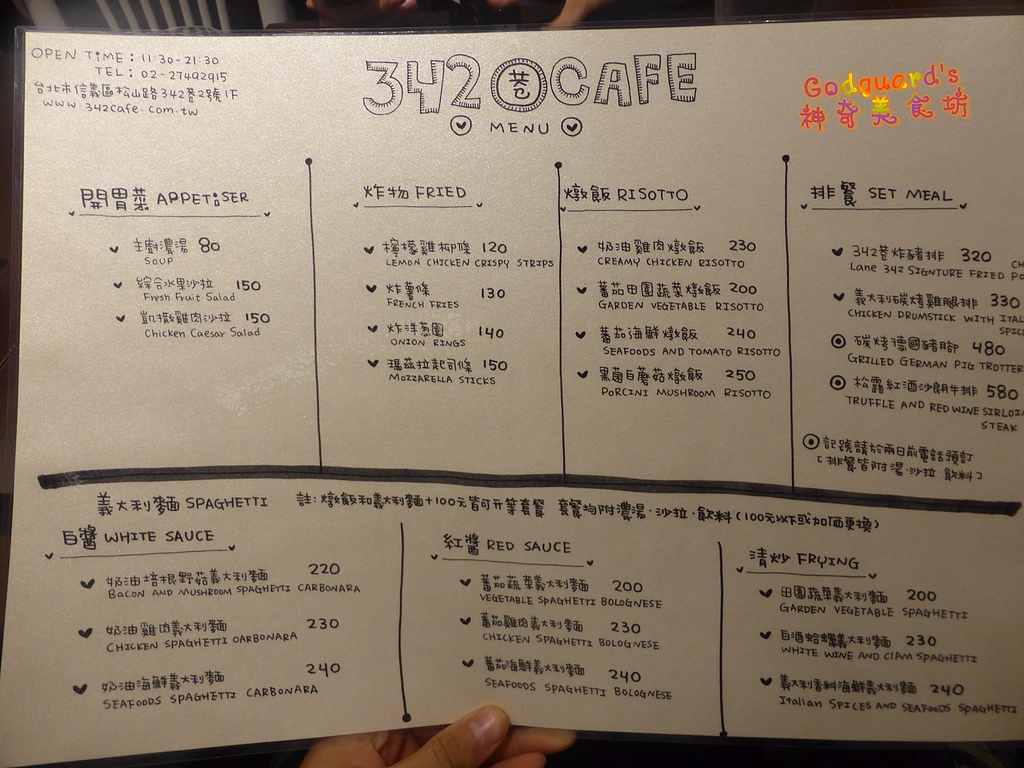 OPEN TIME: 11:30-21:30
TEL: 02-27492915
台北市信義區松山路342巷2號1F
www.342cafe.com.tw
342巷CAFE
MENU
Godguard's
神奇美食坊
開胃菜 APPETiSER
主廚濃湯 80
SOUP
綜合水果沙拉 150
Fresh Fruit Salad
凱撒雞肉沙拉 150
Chicken Caesar Salad
炸物 FRIED
檸檬雞柳條 120
LEMON CHICKEN CRISPY STRIPS
炸薯條 130
FRENCH FRIES
炸洋蔥圈 140
ONION RINGS
瑪茲拉起司條 150
MOZZARELLA STICKS
燉飯 RISOTTO
奶油雞肉燉飯 230
CREAMY CHICKEN RISOTTO
蕃茄田園蔬菜燉飯 200
GARDEN VEGETABLE RISOTTO
蕃茄海鮮燉飯 240
SEAFOODS AND TOMATO RISOTTO
黑菌白蘑菇燉飯 250
PORCINI MUSHROOM RISOTTO
排餐 SET MEAL
342巷炸豬排 320
Lane 342 SIGNTURE FRIED
義大利碳烤雞腿排 330
CHICKEN DRUMSTICK WITH
碳烤德國豬腳 480
GRILLED GERMAN PIG TROTTER
松露紅酒沙朗牛排 580
TRUFFLE AND RED WINE
STEAK
記號請於兩日前電話預訂
[排餐皆附湯.沙拉 飲料]
義大利麵 SPAGHETTI 註:燉飯和義大利麵+100元皆可升等套餐 套餐均附濃湯.沙拉.飲料(100元以下或加価更換)
白醬 WHITE SAUCE
奶油培根野菇義大利麵 220
BACON AND MUSHROOM SPAGHETTI CARBONARA
奶油雞肉義大利麵 230
CHICKEN SPAGHETTI CARBONARA
奶油海鮮義大利麵 240
SEAFOODS SPAGHETTI CARBONARA
紅醬 RED SAUCE
蕃茄蔬菜義大利麵 200
VEGETABLE SPAGHETTI BOLOGNESE
蕃茄雞肉義大利麵 230
CHICKEN SPAGHETTI BOLOGNESE
蕃茄海鮮義大利麵 240
SEAFOODS SPAGHETTI BOLOGNESE
清炒 FRYING
田園蔬菜義大利麵 200
GARDEN VEGETABLE SPAGHETTI
白酒蛤蠣義大利麵 230
WHITE WINE AND CLAM SPAGHETTI
義大利香料海鮮義大利麵 240
Italian SPICES AND SEAFOODS SPAGHETTI